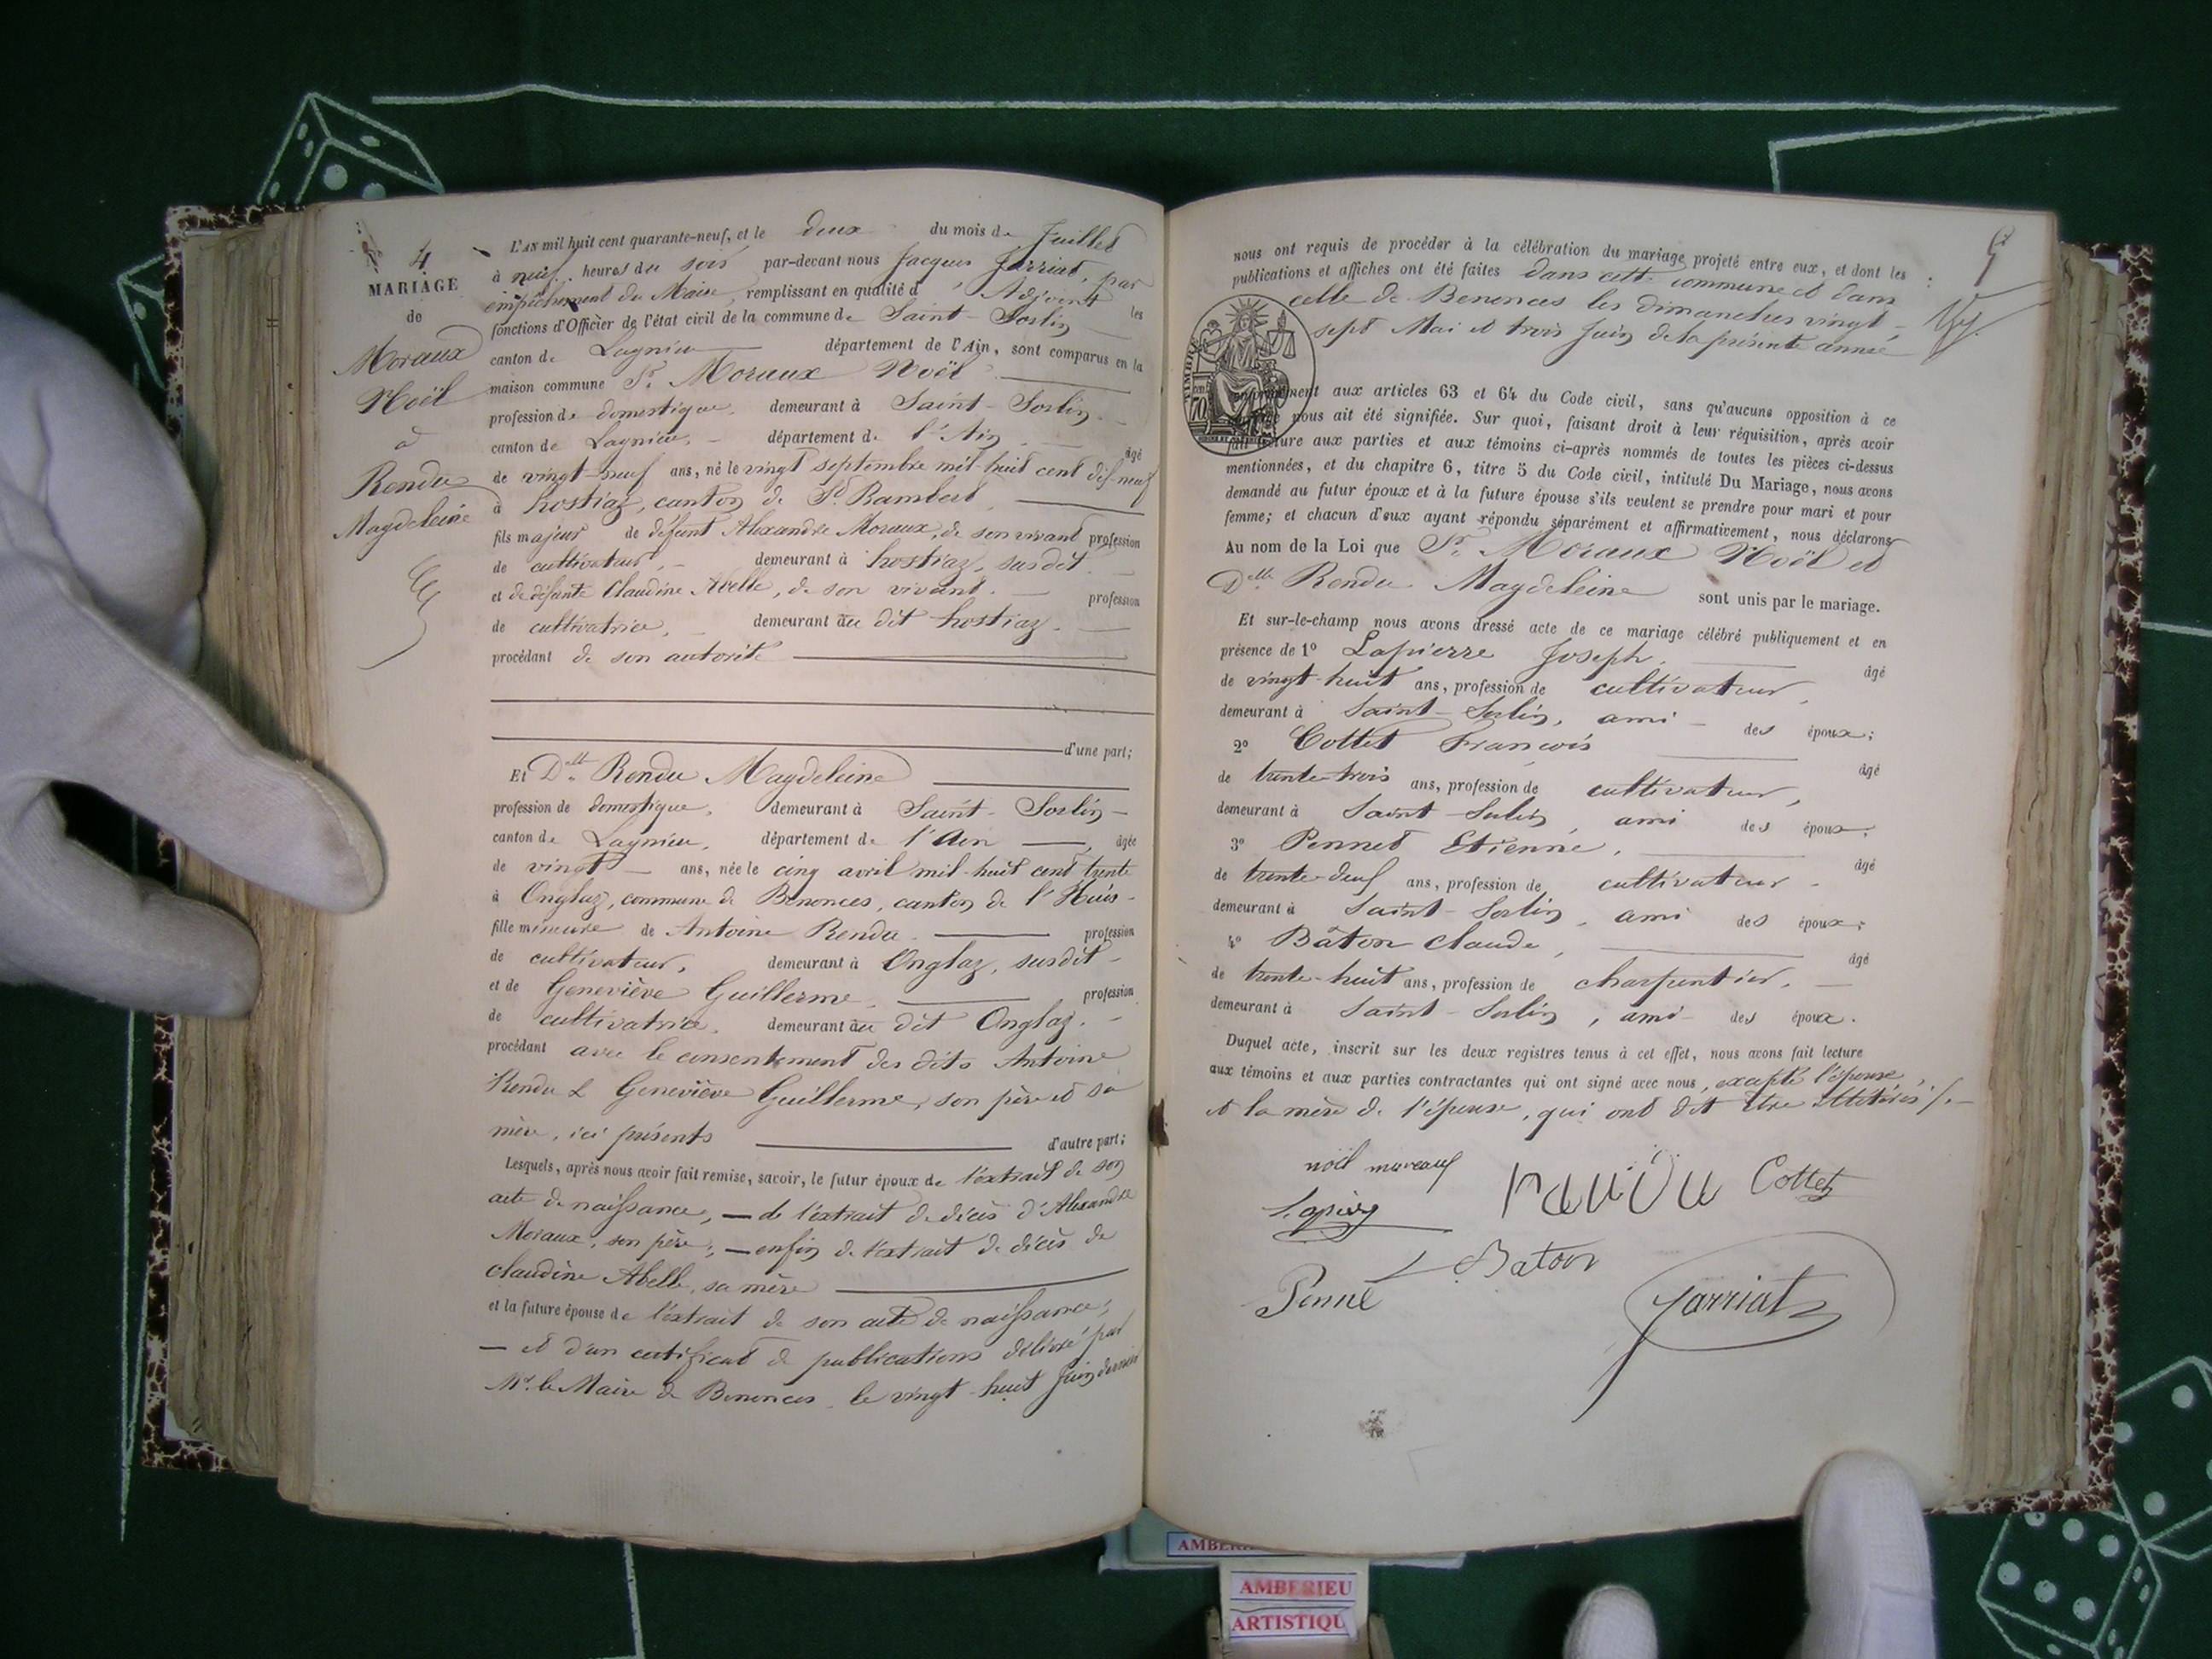 4
MARIAGE
de
Moraux
Noël
à
Rendu
Magdeleine
L'AN mil huit cent quarante-neuf, et le deux du mois de Juillet
à neuf heures du soir par-devant nous Jacques Jarriat, par
empêchement du Maire, remplissant en qualité d'Adjoint les
fonctions d'Officier de l'état civil de la commune de Saint-Sorlin
canton de Lagnieu département de l'Ain, sont comparus en la
maison commune Sr. Moraux Noël
profession de domestique, demeurant à Saint-Sorlin
canton de Lagnieu, département de l'Ain âgé
de vingt-neuf ans, né le vingt septembre mil huit cent dix-neuf
à hostiaz, canton de St. Rambert
fils majeur de défunt Alexandre Moraux, de son vivant profession
de cultivateur, demeurant à hostiaz, susdit
et de défunte Claudine Abelle, de son vivant profession
de cultivatrice, demeurant au dit hostiaz
procédant de son autorité
d'une part;
Et Delle Rendu Magdeleine
profession de domestique, demeurant à Saint-Sorlin
canton de Lagnieu, département de l'Ain, âgée
de vingt ans, née le cinq avril mil huit cent trente
à Onglaz, commune de Benonces, canton de l'Huis
fille mineure de Antoine Rendu profession
de cultivateur, demeurant à Onglaz, susdit
et de Geneviève Guillerme profession
de cultivatrice, demeurant au dit Onglaz.
procédant avec le consentement des dits Antoine
Rendu & Geneviève Guillerme, son père et sa
mère, ici présents d'autre part;
Lesquels, après nous avoir fait remise, savoir, le futur époux de l'extrait de son
acte de naissance, — de l'extrait de décès d'Alexandre
Moraux, son père; — enfin de l'extrait de décès de
Claudine Abelle, sa mère
et la future épouse de l'extrait de son acte de naissance;
— et d'un certificat de publications délivré par
Mr. le Maire de Benonces le vingt-huit Juin dernier
5
nous ont requis de procéder à la célébration du mariage projeté entre eux, et dont les
publications et affiches ont été faites dans cette commune et dans
celle de Benonces les dimanches vingt-
sept Mai et trois Juin de la présente année
TIMBRE
70
conformément aux articles 63 et 64 du Code civil, sans qu'aucune opposition à ce
mariage nous ait été signifiée. Sur quoi, faisant droit à leur réquisition, après avoir
fait lecture aux parties et aux témoins ci-après nommés de toutes les pièces ci-dessus
mentionnées, et du chapitre 6, titre 5 du Code civil, intitulé Du Mariage, nous avons
demandé au futur époux et à la future épouse s'ils veulent se prendre pour mari et pour
femme; et chacun d'eux ayant répondu séparément et affirmativement, nous déclarons
Au nom de la Loi que Sr. Moraux Noël et
Delle Rendu Magdeleine sont unis par le mariage.
Et sur-le-champ nous avons dressé acte de ce mariage célébré publiquement et en
présence de 1º Lapierre Joseph, âgé
de vingt-huit ans, profession de cultivateur,
demeurant à Saint-Sorlin, ami des époux;
2º Cottet François âgé
de trente-trois ans, profession de cultivateur,
demeurant à Saint-Sorlin, ami des époux;
3º Pennet Etienne, âgé
de trente-deux ans, profession de cultivateur
demeurant à Saint-Sorlin, ami des époux;
4º Bâton Claude, âgé
de trente-huit ans, profession de charpentier,
demeurant à Saint-Sorlin, ami des époux.
Duquel acte, inscrit sur les deux registres tenus à cet effet, nous avons fait lecture
aux témoins et aux parties contractantes qui ont signé avec nous, excepté l'épouse,
et la mère de l'épouse, qui ont dit être illettrées /.
noël mureaux
Rendu Cottet
Lapierre
Baton
Penné
Jarriat
AMBERIEU
ARTISTIQU